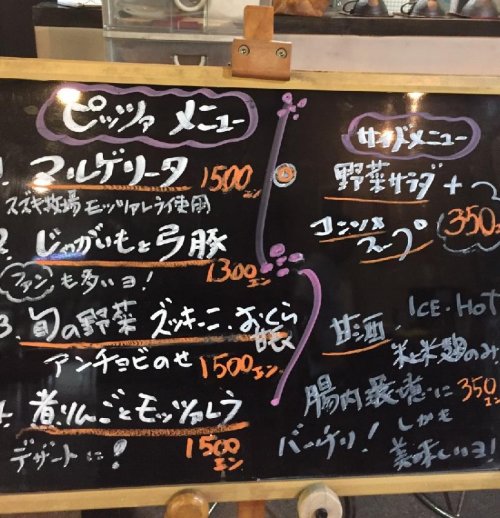 ピッツァ メニュー
マルゲリータ 1500エン
スズキ牧場 モッツァレラ使用
2. じゃがいもと弓豚
1300エン
ファンも多いヨ!
3. 旬の野菜 ズッキーニ・おくら
アンチョビのせ 1500エン
煮りんごとモッツァレラ
デザートに! 1500エン
サイドメニュー
野菜サラダ +
コンソメスープ 350
甘酒 ICE・HOT
米と米麹のみ
腸内環境に 350エン
バッチリ! しかも
美味しいヨ!